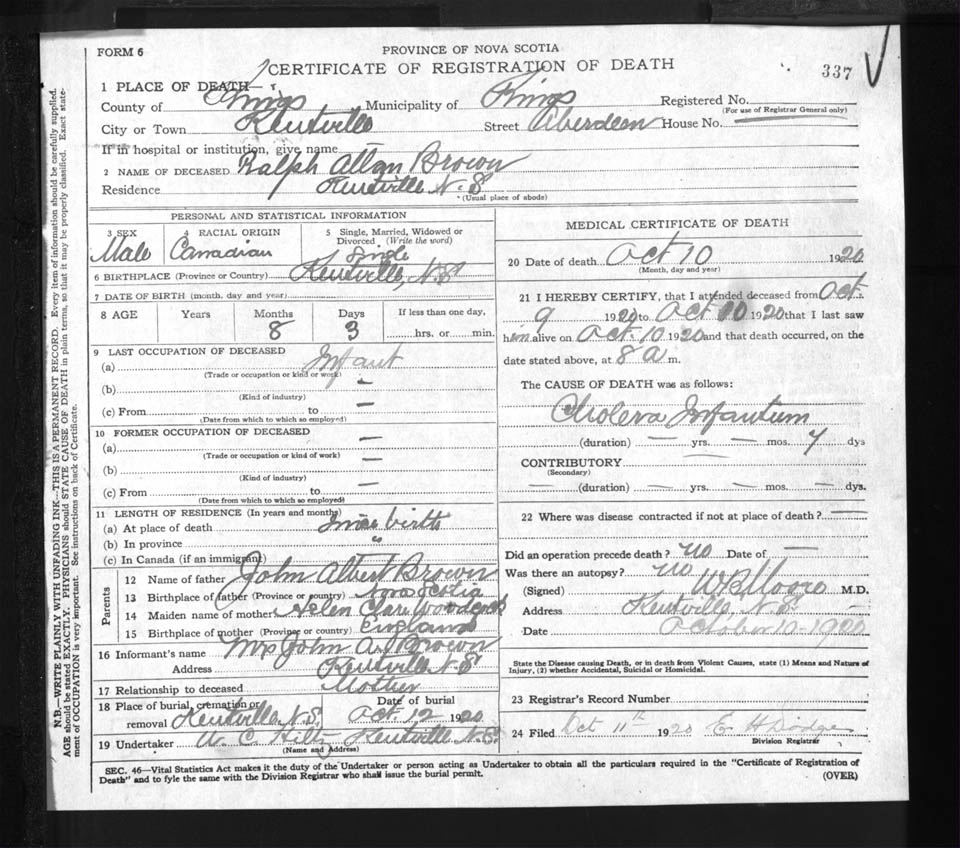 FORM 6
PROVINCE OF NOVA SCOTIA
CERTIFICATE OF REGISTRATION OF DEATH
337
1 PLACE OF DEATH—
County of Kings Municipality of Kings Registered No.
(For use of Registrar General only)
City or Town Kentville Street Aberdeen House No.
If in hospital or institution, give name
2 NAME OF DECEASED Ralph Allan Brown
Residence Kentville N.S
(Usual place of abode)
PERSONAL AND STATISTICAL INFORMATION
3 SEX Male
4 RACIAL ORIGIN Canadian
5 Single, Married, Widowed or Divorced. (Write the word) Single
6 BIRTHPLACE (Province or Country) Kentville, N.S
7 DATE OF BIRTH (month, day and year)
8 AGE Years Months 8 Days 3 If less than one day, hrs. or min.
9 LAST OCCUPATION OF DECEASED
(a) Infant
(Trade or occupation or kind of work)
(b) —
(Kind of industry)
(c) From to —
(Date from which to which so employed)
10 FORMER OCCUPATION OF DECEASED
(a) —
(Trade or occupation or kind of work)
(b) —
(Kind of industry)
(c) From to —
(Date from which to which so employed)
11 LENGTH OF RESIDENCE (In years and months)
(a) At place of death Since birth
(b) In province "
(c) In Canada (if an immigrant)
Parents
12 Name of father John Albert Brown
13 Birthplace of father (Province or country) Nova Scotia
14 Maiden name of mother Helen Clare Woodcock
15 Birthplace of mother (Province or country) England
16 Informant's name Mrs John A. Brown
Address Kentville N.S
17 Relationship to deceased Mother
18 Place of burial, cremation or removal Kentville N.S. Date of burial Oct. 12 1920
19 Undertaker W. C. Hiltz Kentville N.S.
(Name and Address)
MEDICAL CERTIFICATE OF DEATH
20 Date of death Oct 10 1920
(Month, day and year)
21 I HEREBY CERTIFY, that I attended deceased from Oct.
9 1920 to Oct 10 1920 that I last saw
him alive on Oct. 10 1920 and that death occurred, on the
date stated above, at 8 a m.
The CAUSE OF DEATH was as follows:
Cholera Infantum
(duration) — yrs. — mos. 7 dys
CONTRIBUTORY —
(Secondary)
— (duration) — yrs. — mos. — dys.
22 Where was disease contracted if not at place of death? —
Did an operation precede death? no Date of —
Was there an autopsy? no
(Signed) W B Moore M.D.
Address Kentville, N.S. —
Date October 10-1920
State the Disease causing Death, or in death from Violent Causes, state (1) Means and Nature of Injury, (2) whether Accidental, Suicidal or Homicidal.
23 Registrar's Record Number
24 Filed Oct 11th 1920 E H Dodge
Division Registrar
SEC. 46—Vital Statistics Act makes it the duty of the Undertaker or person acting as Undertaker to obtain all the particulars required in the "Certificate of Registration of
Death" and to fyle the same with the Division Registrar who shall issue the burial permit.
(OVER)
N.B.—WRITE PLAINLY WITH UNFADING INK—THIS IS A PERMANENT RECORD. Every item of information should be carefully supplied.
AGE should be stated EXACTLY. PHYSICIANS should STATE CAUSE OF DEATH in plain terms, so that it may be properly classified. Exact state-
ment of OCCUPATION is very important. See instructions on back of Certificate.